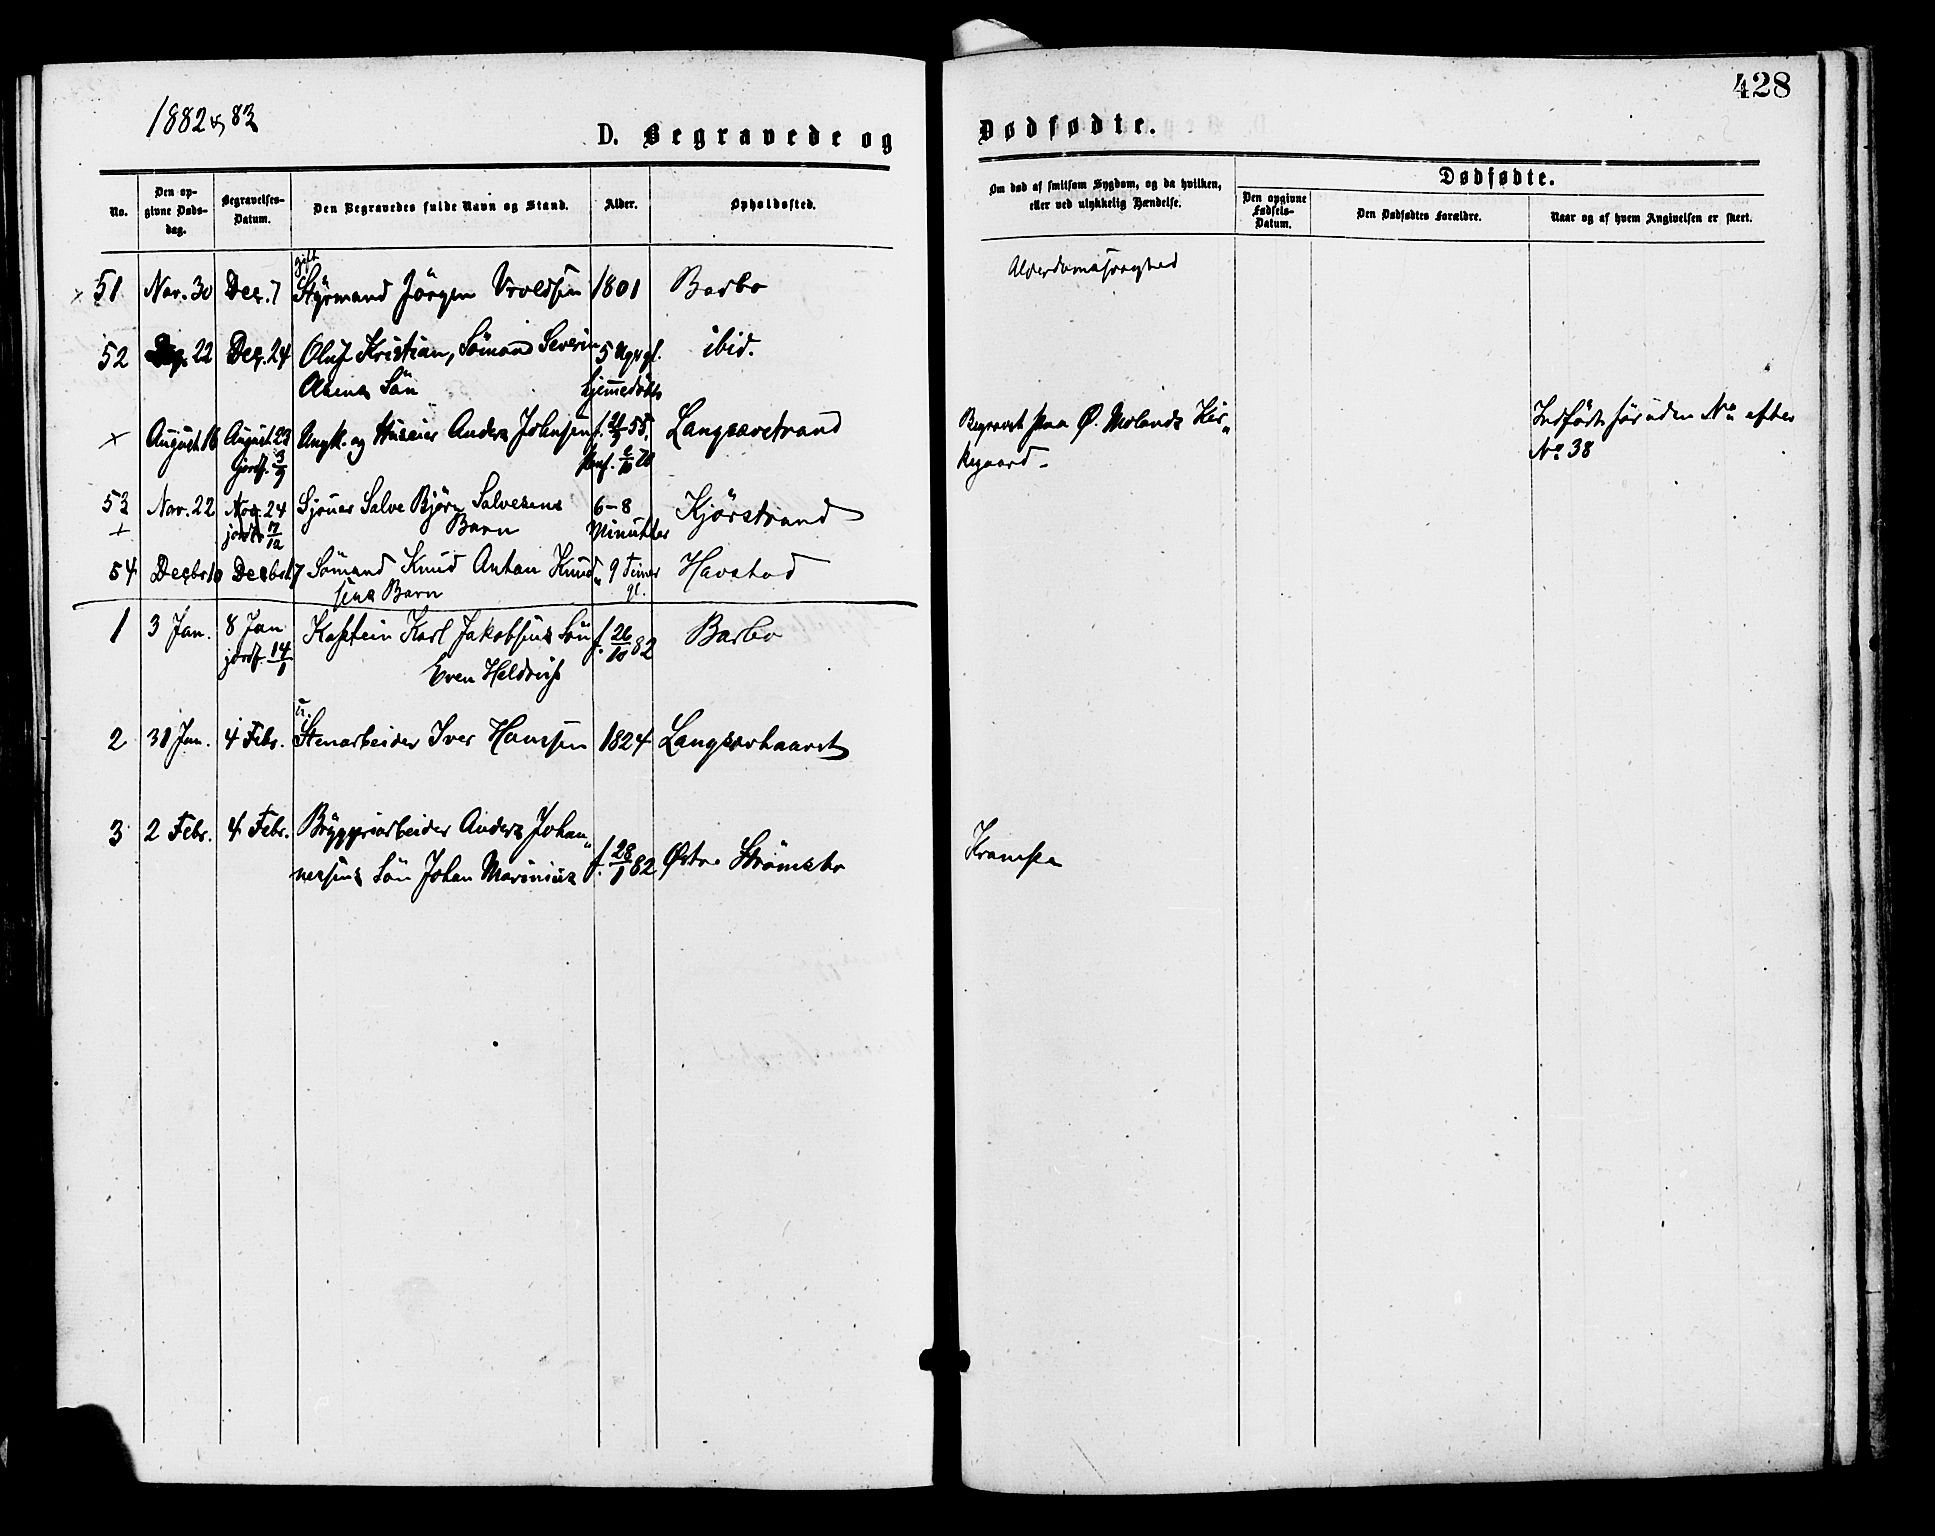 428
1882 & 83
D. Begravede og Dødfødte.
No.
Den op-
givne Døds-
dag.
Begravelses-
Datum.
Den Begravedes fulde Navn og Stand.
Alder.
Opholdssted.
Om død af smitsom Sygdom, og da hvilken,
eller ved ulykkelig Hændelse.
Dødfødte.
Den opgivne
Fødsels-
Datum.
Den Dødfødtes Forældre.
Naar og af hvem Angivelsen er skeet.
gift
x 51 Nov. 30 Dec. 7 Styrmand Jörgen 1801 Barbo Alderdomssvaghed
52 22 Dec. 24 Oluf Kristian, Sömand Severin 5 Uger gl. ibid.
Olsens Sön hjemmedöbt
x August 16 August 23 Ungk. og Huseier Anders Johnsen f. 55, Langsævstrand Begravet paa Ø. Molands Kir„ Indført her uden No efter
jordf. 3/9 konf. 70 kegaard. No 38
53 Nov. 22 Nov. 24 Gjörtler Salve Björn Salvesens 6-8 Kjörstrand
x jordf. 17/12 Barn Minutter
54 Decbr 10 Decbr 17 Sömand Knud Anton Knud„ 9 Timer Havstad
sens Barn gl.
1 3 Jan. 8 Jan Kaptein Karl Jakobsens Sön f. 26/10 82 Barbo
jordf. 14/1 Even Heldrup
2 31 Jan. 4 Febr. Stenarbeider Iver Hansen 1824 Langsævhaavet
3 2 Febr. 4 Febr. Bryggeriarbeider Anders Johan„ Krampe
nessens Sön Johan Marinius f. 28/1 82 Østre Strömsbo